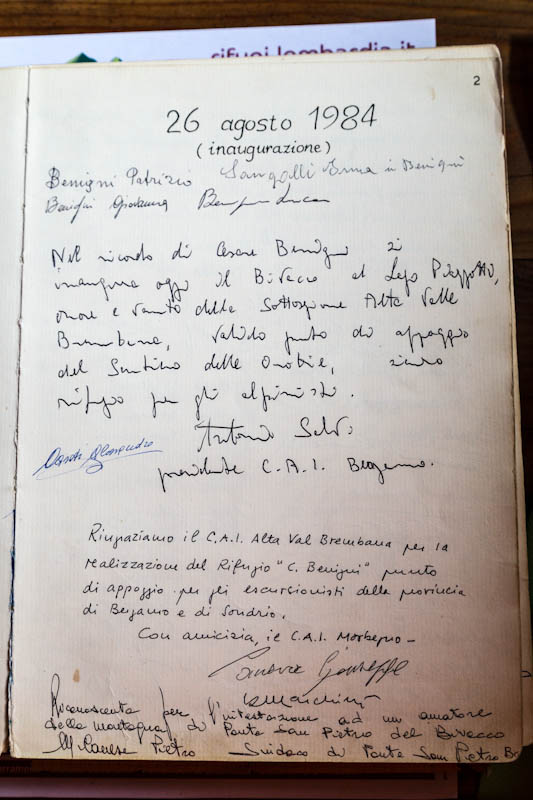 rifugi.lombardia.it
2
26 agosto 1984
(inaugurazione)
Benigni Patrizio Sangalli Anna in Benigni
Benigni Giovanna
Nel ricordo di Cesare Benigni si
inaugura oggi il Bivacco al Lago Piazzotti,
onore e vanto della Sottosezione Alta Valle
Brembana, valido punto di appoggio
del Sentiero delle Orobie, sicuro
rifugio per gli alpinisti.
Antonio Salvi
presidente C.A.I. Bergamo.
Ringraziamo il C.A.I. Alta Val Brembana per la
realizzazione del Rifugio "C. Benigni" punto
di appoggio per gli escursionisti della provincia
di Bergamo e di Sondrio.
Con amicizia, il C.A.I. Morbegno -
Giuseppe
Riconoscente per l'intestazione ad un amatore
della montagna di Ponte San Pietro del Bivacco
Pietro Sindaco di Ponte San Pietro